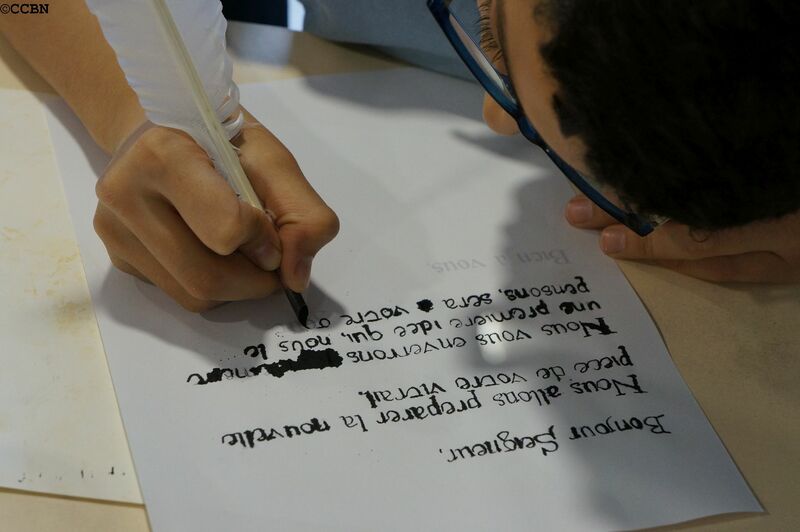 ©CCBN
Bonjour Seigneur,
Nous allons preparer la nouvelle
piece de votre vitrail.
Nous vous enverrons
une premiere idee qui, nous le
pensons, sera votre
Bien à vous,